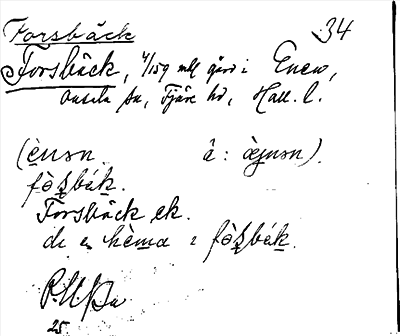 Forsbäck 34
Forsbäck, 4/159 mtl gård i Enew,
Onsala sn, Fjäre hd, Hall. l.
(è̱nɘn. â: ὲgnɘn).
fò̱s̱bák̠.
Forsbäck ek.
de æ hèma i fòs̱bák̠.
25.